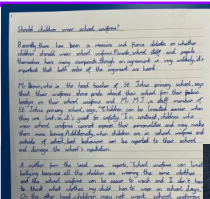 Should children wear school uniforms?
Recently, there has been a massive and fierce debate on whether
children should wear school uniforms. Parents, school staff and pupils
themselves have many viewpoints, though an agreement is very unlikely, it's
important that both sides of the argument are heard.
Mr Brown, who is the head teacher of St Johns primary school, says
that their uniforms show pride about their school from their fashion
badges on their school uniform and Mr M.J a staff member of
St Johns primary school, says, "children can be located easier when
they are lost, so, it's great for safety. In contrast, children who
wear school uniforms cannot express their personalities and may make
them more boring. Additionally, when children are in school uniform and
outside of school, bad behaviour can be reported to their school
and damage the school's reputation.
A mother from the local area reports, "School uniforms can limit
bullying because all the children are wearing the same clothes
and the school uniforms can be easier to wash and I don't have
to think what clothes my child has to wear on school days.
On the other hand, children may not want school uniforms